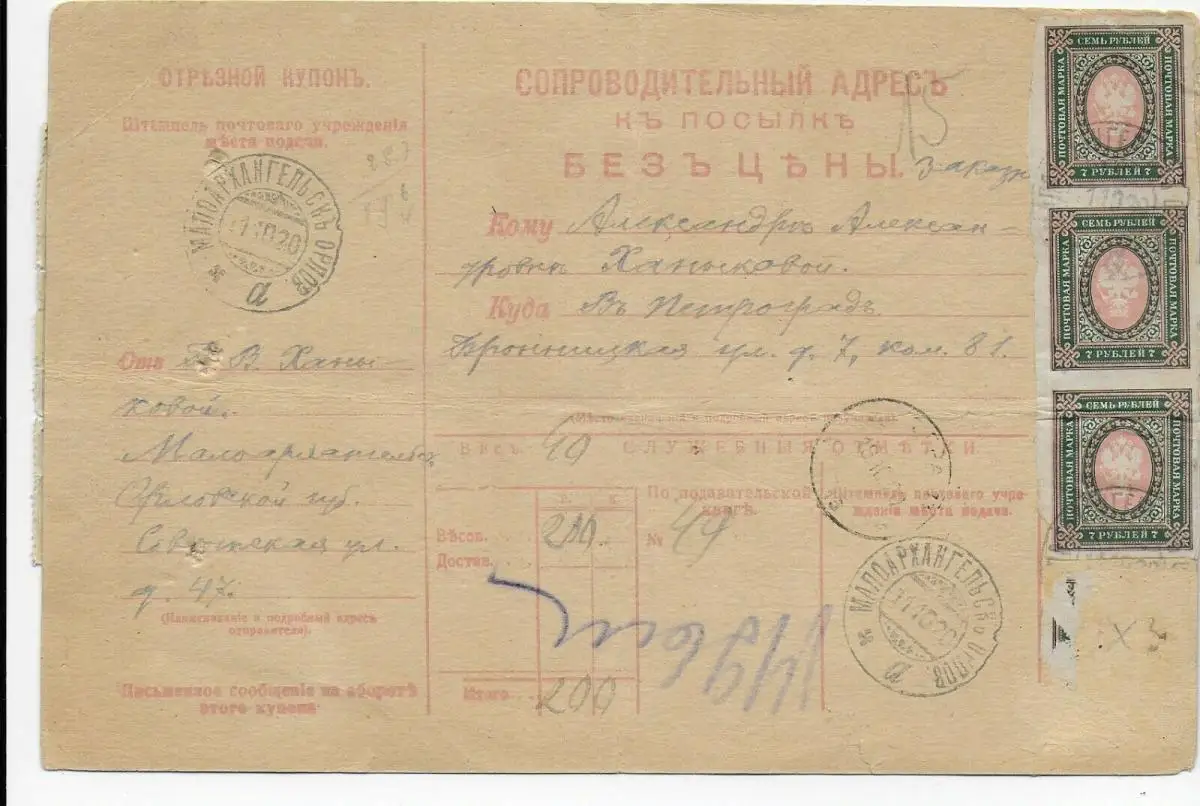 ОТРѢЗНОЙ КУПОНЪ.
Штемпель почтоваго учрежденія
мѣста подачи.
МАЛОАРХАНГЕЛЬСКЪ ОРЛОВ.
11 10 20
а
Отъ В. Ханы
ковой.
Малоархангельск
Орловской губ.
Совѣтская ул.
д. 47.
(Наименованіе и подробный адресъ
отправителя).
Письменное сообщеніе на оборотѣ
этого купона
СОПРОВОДИТЕЛЬНЫЙ АДРЕСЪ
КЪ ПОСЫЛКѢ
БЕЗЪ ЦѢНЫ.
15
заказн
Кому Александрѣ Алексан-
дровнѣ Ханыковой.
Куда Въ Петроградъ
Бронницкая ул. д. 7, ком. 81.
(Мѣсто назначенія и подробный адресъ получателя).
Вѣсъ 10 СЛУЖЕБНЫЯ ОТМѢТКИ.
Р. К.
Вѣсов. 200.
Достав.
Итого 200
По подавательской
книгѣ.
№ 49
Штемпель почтоваго учре-
жденія мѣста подачи.
МАЛОАРХАНГЕЛЬСКЪ ОРЛОВ.
11 10 20
а
СЕМЬ РУБЛЕЙ
ПОЧТОВАЯ МАРКА
ПОЧТОВАЯ МАРКА
7 РУБЛЕЙ 7
СЕМЬ РУБЛЕЙ
ПОЧТОВАЯ МАРКА
ПОЧТОВАЯ МАРКА
7 РУБЛЕЙ 7
СЕМЬ РУБЛЕЙ
ПОЧТОВАЯ МАРКА
ПОЧТОВАЯ МАРКА
7 РУБЛЕЙ 7
х 3